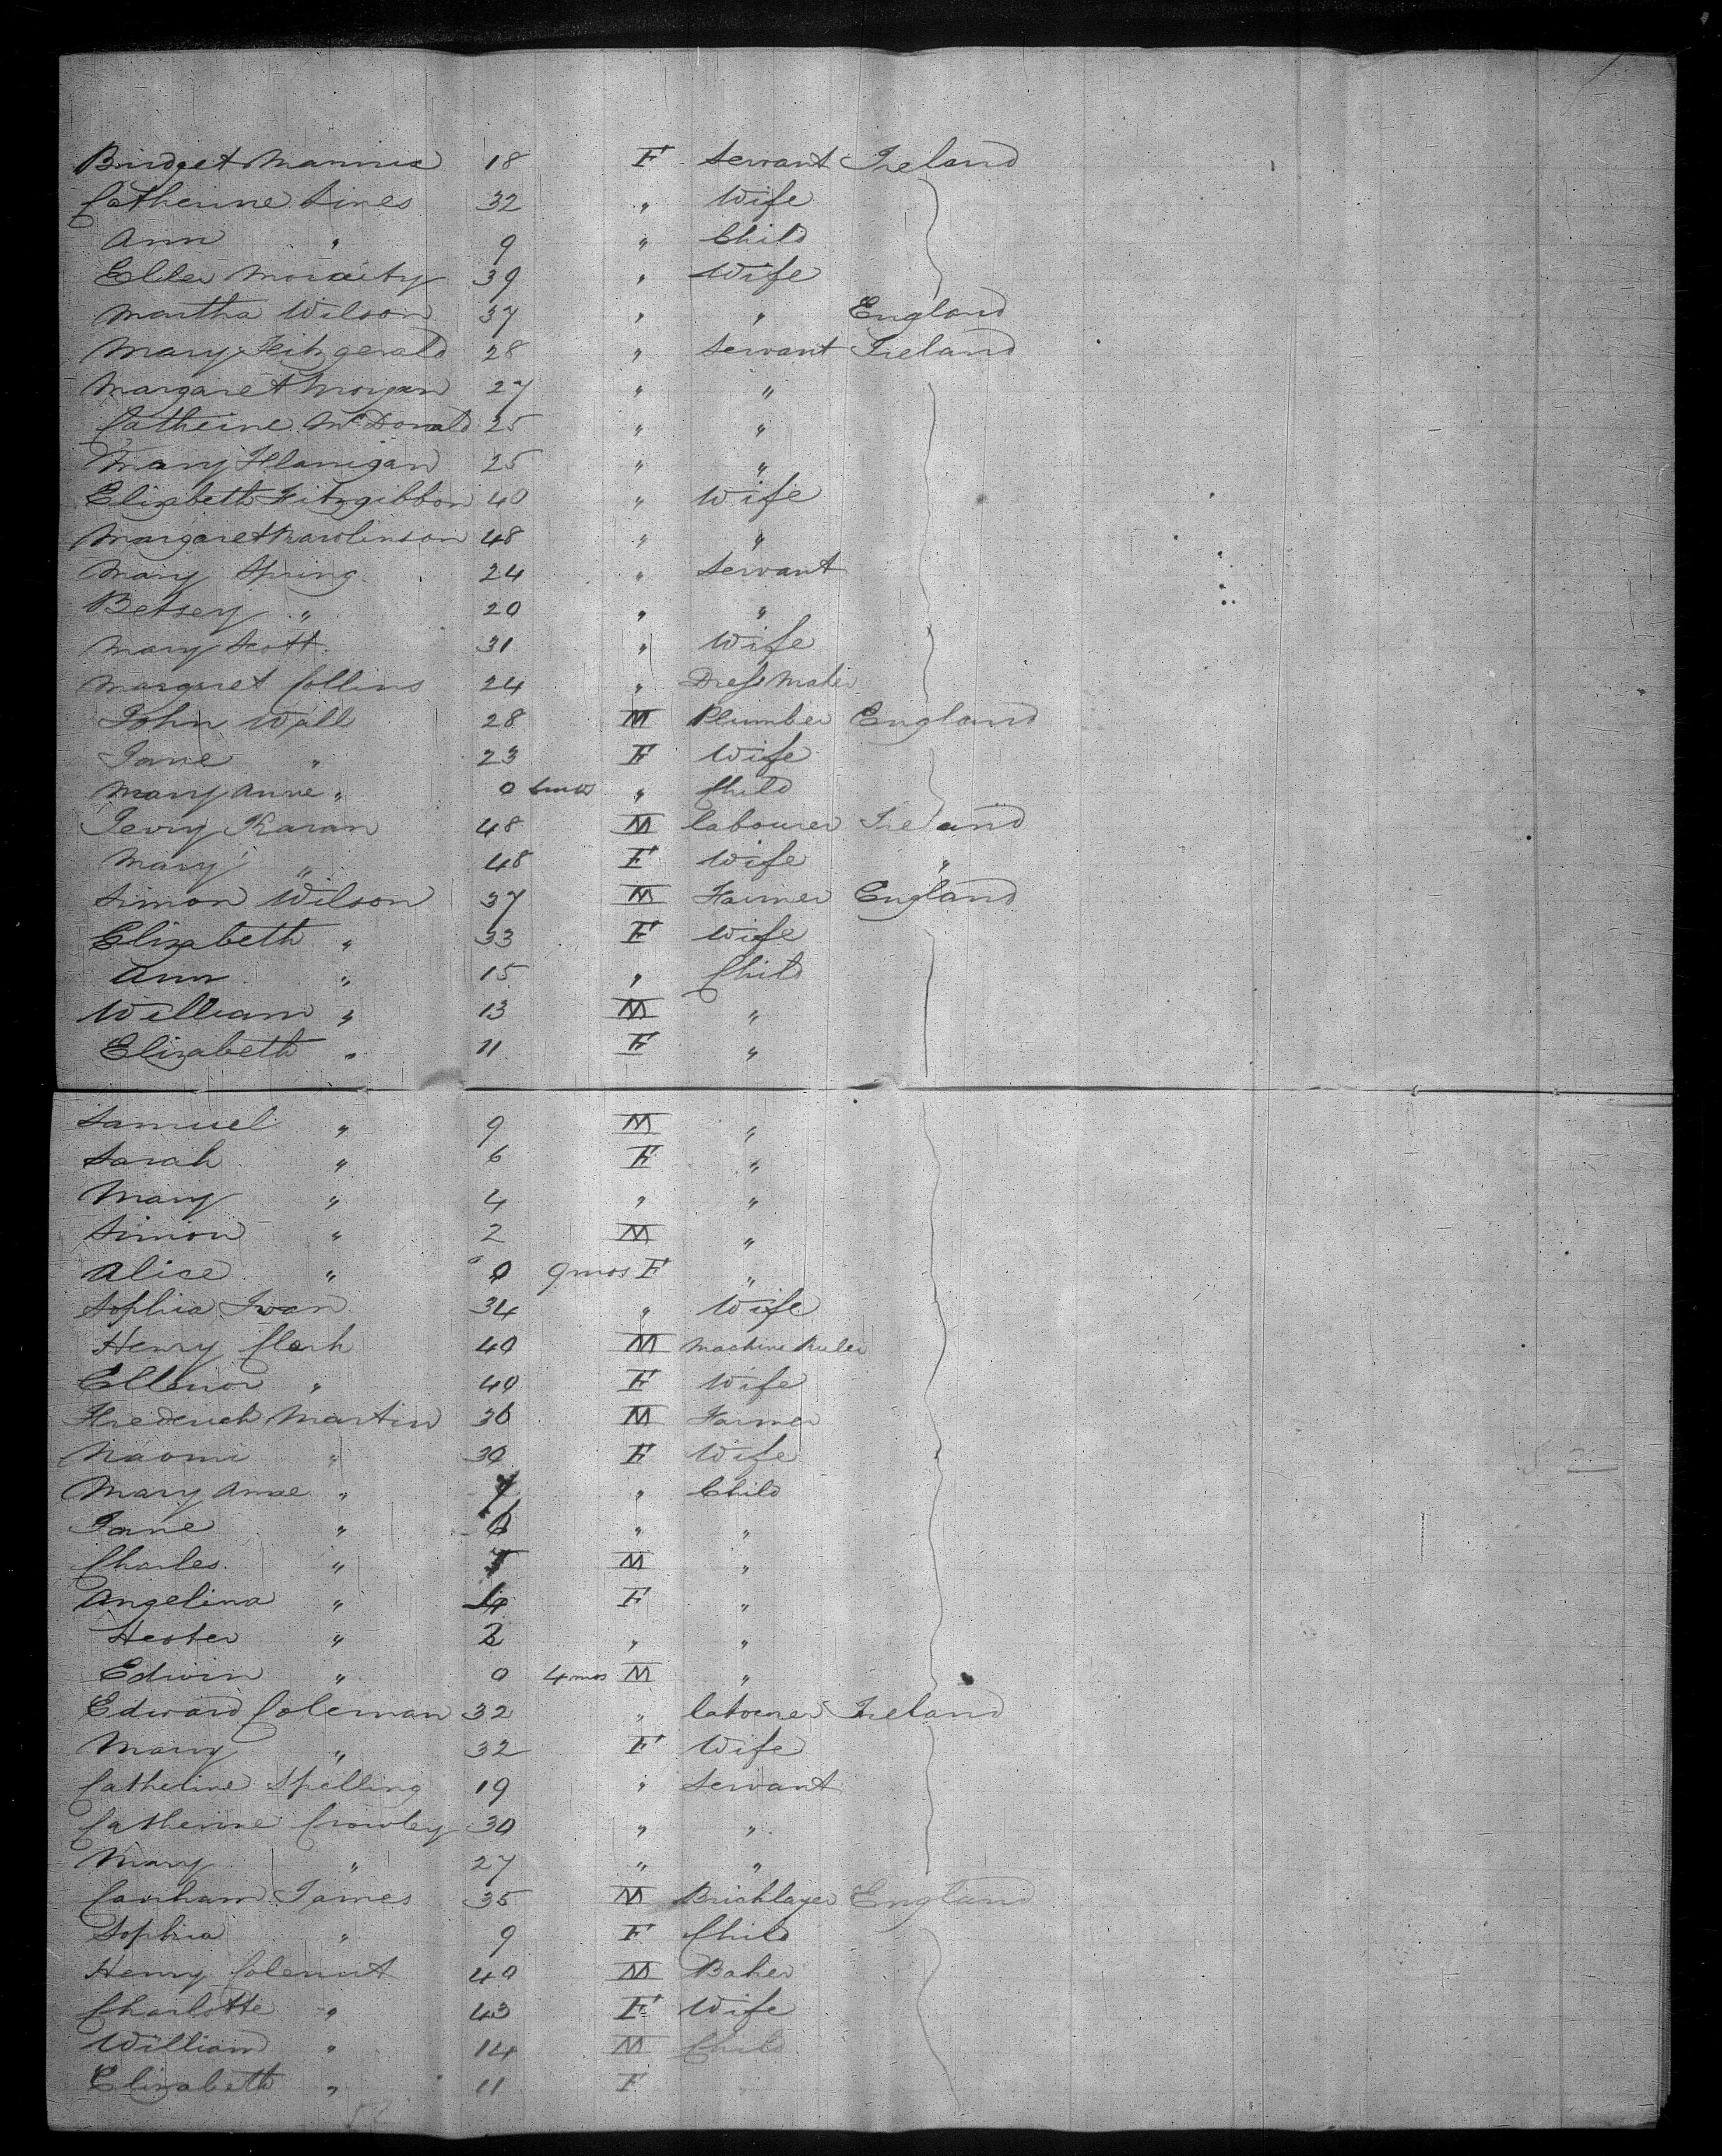 Bridget Mannix 18 F Servant Ireland
Catherine Sines 32 " Wife
Ann " 9 " Child
Ellen Moriarty 39 " Wife
Martha Wilson 37 " " England
Mary Fitzgerald 28 " Servant Ireland
Margaret Morgan 27 " "
Catherine McDonald 25 " "
Mary Flanigan 25 " "
Elizabeth Fitzgibbon 40 " Wife
Margaret Rawlinson 48 " "
Mary Spring 24 " Servant
Betsey " 20 " "
Mary Scott 31 " Wife
Margaret Collins 24 " Dress Maker
John Wall 28 M Plumber England
Jane " 23 F Wife
Mary Anne " 0 6mos " Child
Jerry Karan 48 M labourer Ireland
Mary " 48 F Wife "
Simon Wilson 37 M Farmer England
Elizabeth " 33 F Wife
Ann " 15 " Child
William " 13 M "
Elizabeth " 11 F "
Samuel " 9 M "
Sarah " 6 F "
Mary " 4 " "
Simon " 2 M "
Alice " 0 9mos F "
Sophia Swan 34 " Wife
Henry Clark 40 M Machine Ruler
Ellenor " 40 F Wife
Frederick Martin 36 M Farmer
Naomi " 30 F Wife
Mary Anne " 7 " Child
Jane " 6 " "
Charles " 5 M "
Angelina " 4 F "
Hester " 2 " "
Edwin " 0 4mos M "
Edward Coleman 32 " labourer Ireland
Mary " 32 F Wife
Catherine Spelling 19 " Servant
Catherine Crowley 30 " "
Mary " 27 " "
Canham James 35 M Bricklayer England
Sophia " 9 F Child
Henry Colenut 40 M Baker
Charlotte " 43 F Wife
William " 14 M Child
Elizabeth " 11 F
52